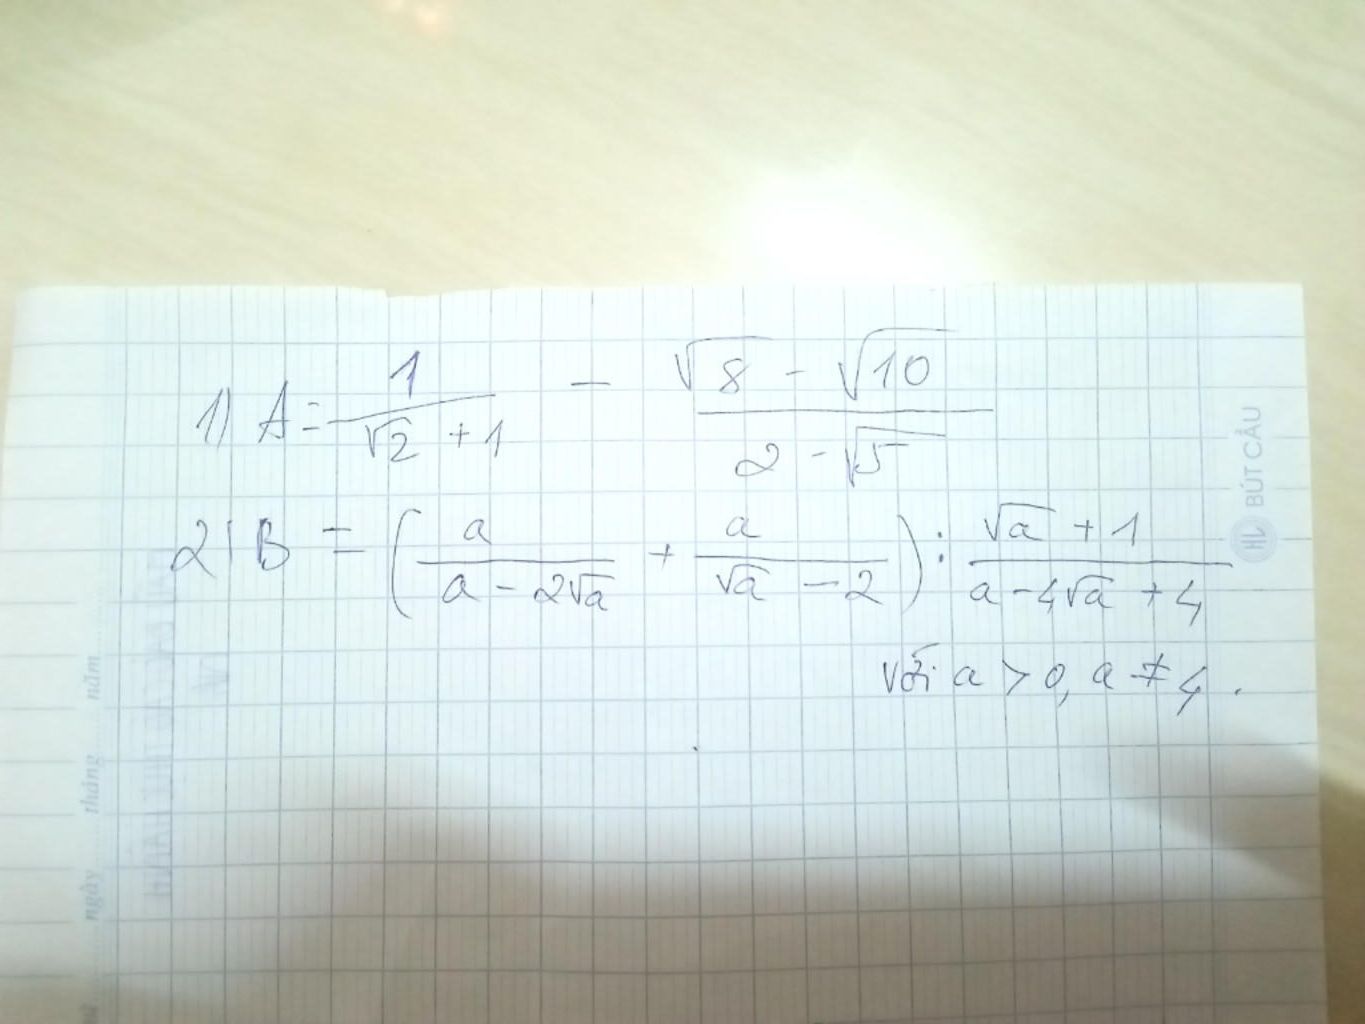 1) A = \frac{1}{\sqrt{2} + 1} - \frac{\sqrt{8} - \sqrt{10}}{2 - \sqrt{5}}
2) B = \left( \frac{a}{a - 2\sqrt{a}} + \frac{a}{\sqrt{a} - 2} \right) : \frac{\sqrt{a} + 1}{a - 4\sqrt{a} + 4}
với a > 0, a ≠ 4.
HL BÚT CẦU
ngày tháng năm